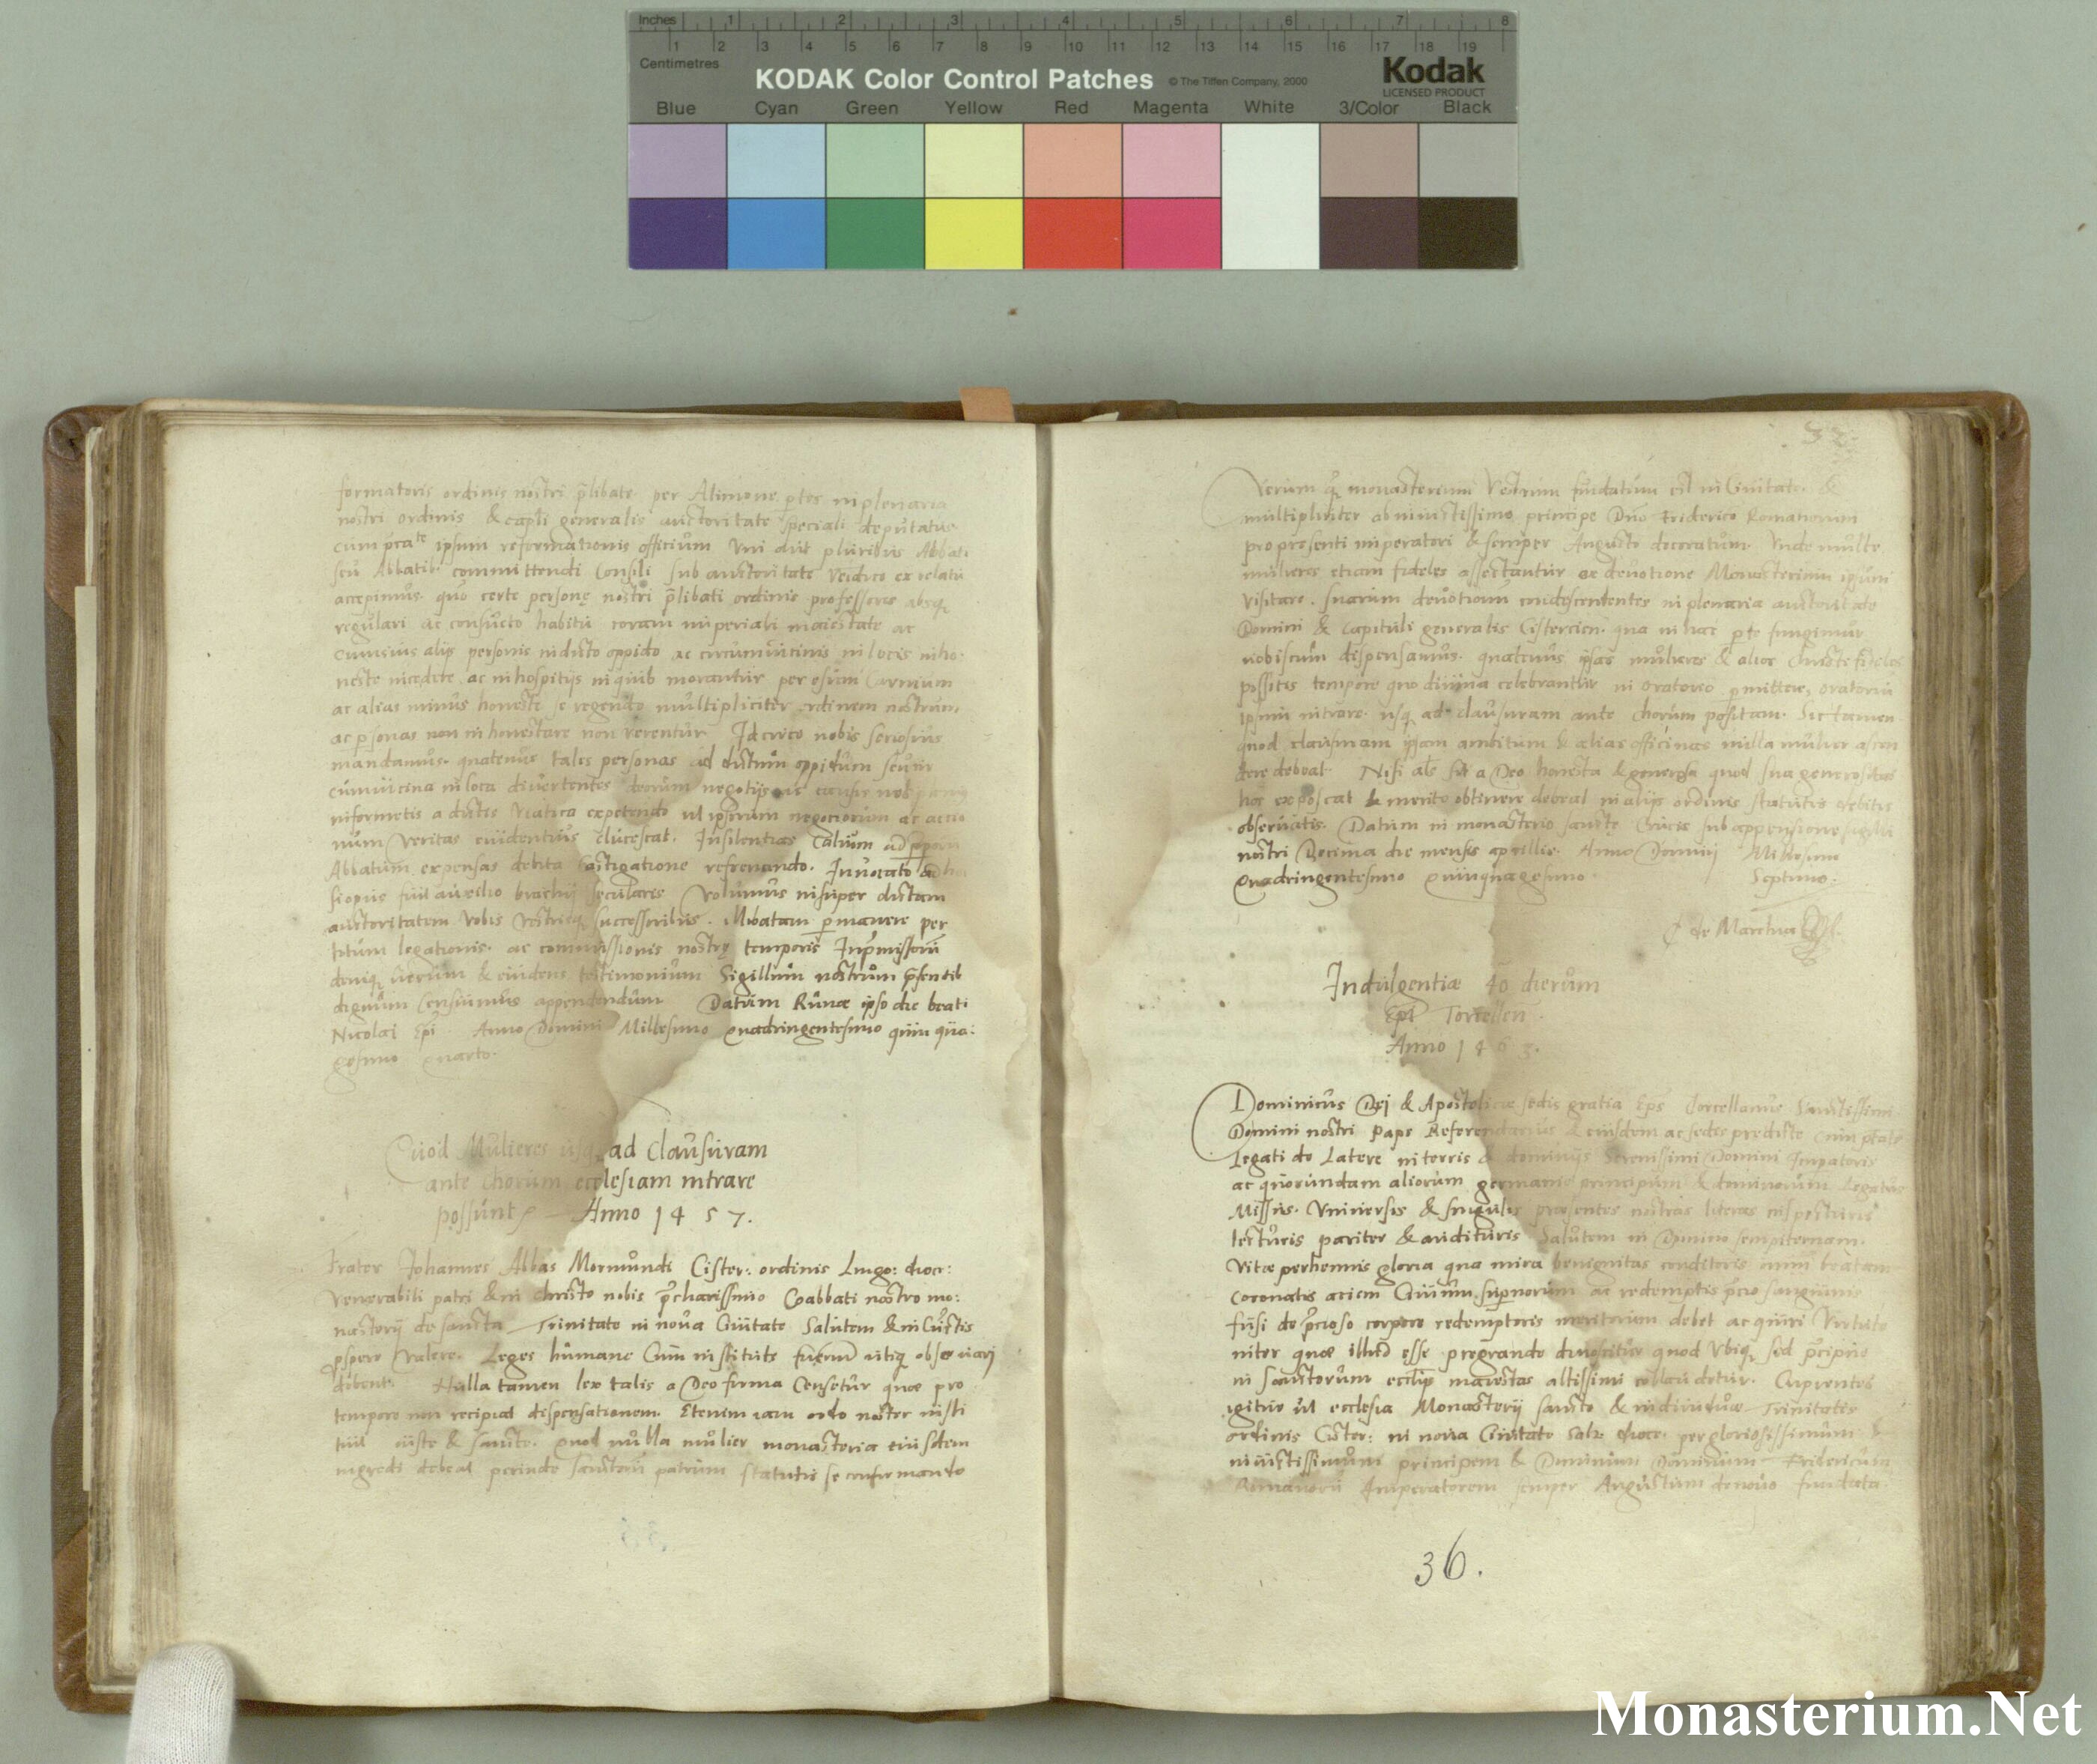 Inches 1 2 3 4 5 6 7 8
1 2 3 4 5 6 7 8 9 10 11 12 13 14 15 16 17 18 19
Centimetres
KODAK Color Control Patches © The Tiffen Company, 2000 Kodak
LICENSED PRODUCT
Blue Cyan Green Yellow Red Magenta White 3/Color Black
formatoris ordinis nostri p̄libate per Alimonie ptes in plenaria
nostri ordinis & capli generalis auctoritate speciali deputatus
ipsum reformationis officium Uni aut pluribus Abbati
seu Abbatib committendi Consili sub auctoritate Veridico ex relatu
accepimus. quo certe personę nostri p̄libati ordinis professores absq
regulari ac consueto habitu coram imperiali maiestate ac
alijs personis in dicto oppido ac circumvicinis in locis inho:
neste incedere ac in hospitijs in quib morantur per esum Carnium
ac alias minus honeste se regendo multipliciter ordinem nostrum,
ac psonas non in honestare non verentur Idcirco nobis seriosius
mandamus. quatenus tales personas ad dictum oppidum seu in
cumvicina in loca divertentes deorum negotijs ac causis
informetis a dictis Viatica expetendo ut ipsorum negociorum ac actio
num Veritas evidentius elucescat. Insolentias talium ad
Abbatum expensas debita Castigatione refrenando. Invocato ad
si opus fuit auxilio brachij secularis Volumus insuper dictam
auctoritatem Vobis Vestrisq successoribus. illibatam pmanere per
totum legationis. ac commissionis nostrę temporis Inpmissorum
deniq verum & evidens testimonium Sigillum nostrum p̄sentib
dignum Censuimus appendendum Datum Runae ipso die beati
Nicolai Epi Anno Domini Millesimo Quadringentesimo quinqua:
gesimo Quarto.
Quod Mulieres usq ad Clausuram
ante Chorum ecclesiam intrare
possunt Anno 1457.
Frater Johannes Abbas Mormundi Cister: ordinis Lingo: dioc:
Venerabili patri & in Christo nobis p̄charissimo Coabbati nostro mo:
nasterij de sancta Trinitate in nova Civitate Salutem & in Cunctis
pspere Valere. Leges humane Cum institute fuerint utiq observari
debent. Nulla tamen lex talis a Deo firma Censetur quae pro
tempore non recipiat dispensationem. Etenim iam ordo noster insti
tuit iuste & sancte. quod nulla mulier monasteria eiusdem
ingredi debeat perinde sanctorum patrum statutis se confirmando
32
Verum q monasterium Vestrum fundatum est in Civitate &
multipliciter ab invictissimo principe Dno Friderico Romanorum
pro presenti imperatori & semper Augusto decoratum. Unde multe
mulieres etiam fideles affectantur ex devotione Monasterium ipsum
Visitare. suarum devotioni condescendentes in plenaria auctoritate
Domini & Capituli generalis Cistercien. qua in hac pte fungimur
vobiscum dispensamus. quatenus ipsas mulieres & alios Christi fideles
possitis tempore quo divina celebrantur in oratorio pmittere, oratoriu
ipsum intrare. usq ad clausuram ante Chorum positam. Sic tamen
quod clausuram ipsam ambitum & alias officinas nulla mulier ascen
dere debeat. Nisi sit a Deo honesta & generosa quod sua generositas
hoc exposcat & merito obtinere debeat in alijs ordinis statutis debitis
observatis. Datum in monasterio sancte Crucis sub appensione sigilli
nostri Decima die mensis aprillis. Anno Domini Millesimo
Quadringentesimo Quinquagesimo Septimo.
Indulgentiae 40 dierum
Epi Torcellen
Anno 1463.
Dominicus Dei & Apostolicae sedis gratia Eps Torcellanus Sanctissimi
Domini nostri Pape Referendarius & eiusdem ac sedis predicte cum ptate
Legati de Latere in terris & dominijs Serenissimi Domini Impatoris
ac quorundam aliorum germanie principum & dominorum Legatus
Missus. Universis & singulis praesentes nostras literas inspecturis
lecturis pariter & audituris Salutem in Domino sempiternam.
Vitae perhennis gloria qua mira benignitas conditoris omnium beatam
coronatis aciem Civium supnorum ac redemptis p̄cio sanguinis
fusi de p̄cioso corpore redemptoris meritorum debet acquiri Virtute
niter quae illud esse pregrande dinoscitur quod Ubiq sed p̄cipue
in sanctorum ecclijs maiestas altissimi collaudetur. Cupientes
igitur ut ecclesia Monasterij sancte & individuae Trinitatis
ordinis Cister: in nova Civitate Salz. dioce. per gloriosissimum &
invictissimum principem & Dominum Dominum Fridericum
Romanorum Imperatorem semper Augustum denovo fundata
36.
Monasterium.Net